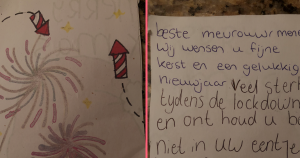 beste mevrouw/mene
Wij wensen u fijne
kerst en een gelukkig
nieuwjaar veel sterk
tijdens de lockdown
en onthoud u b
niet in uw eentje